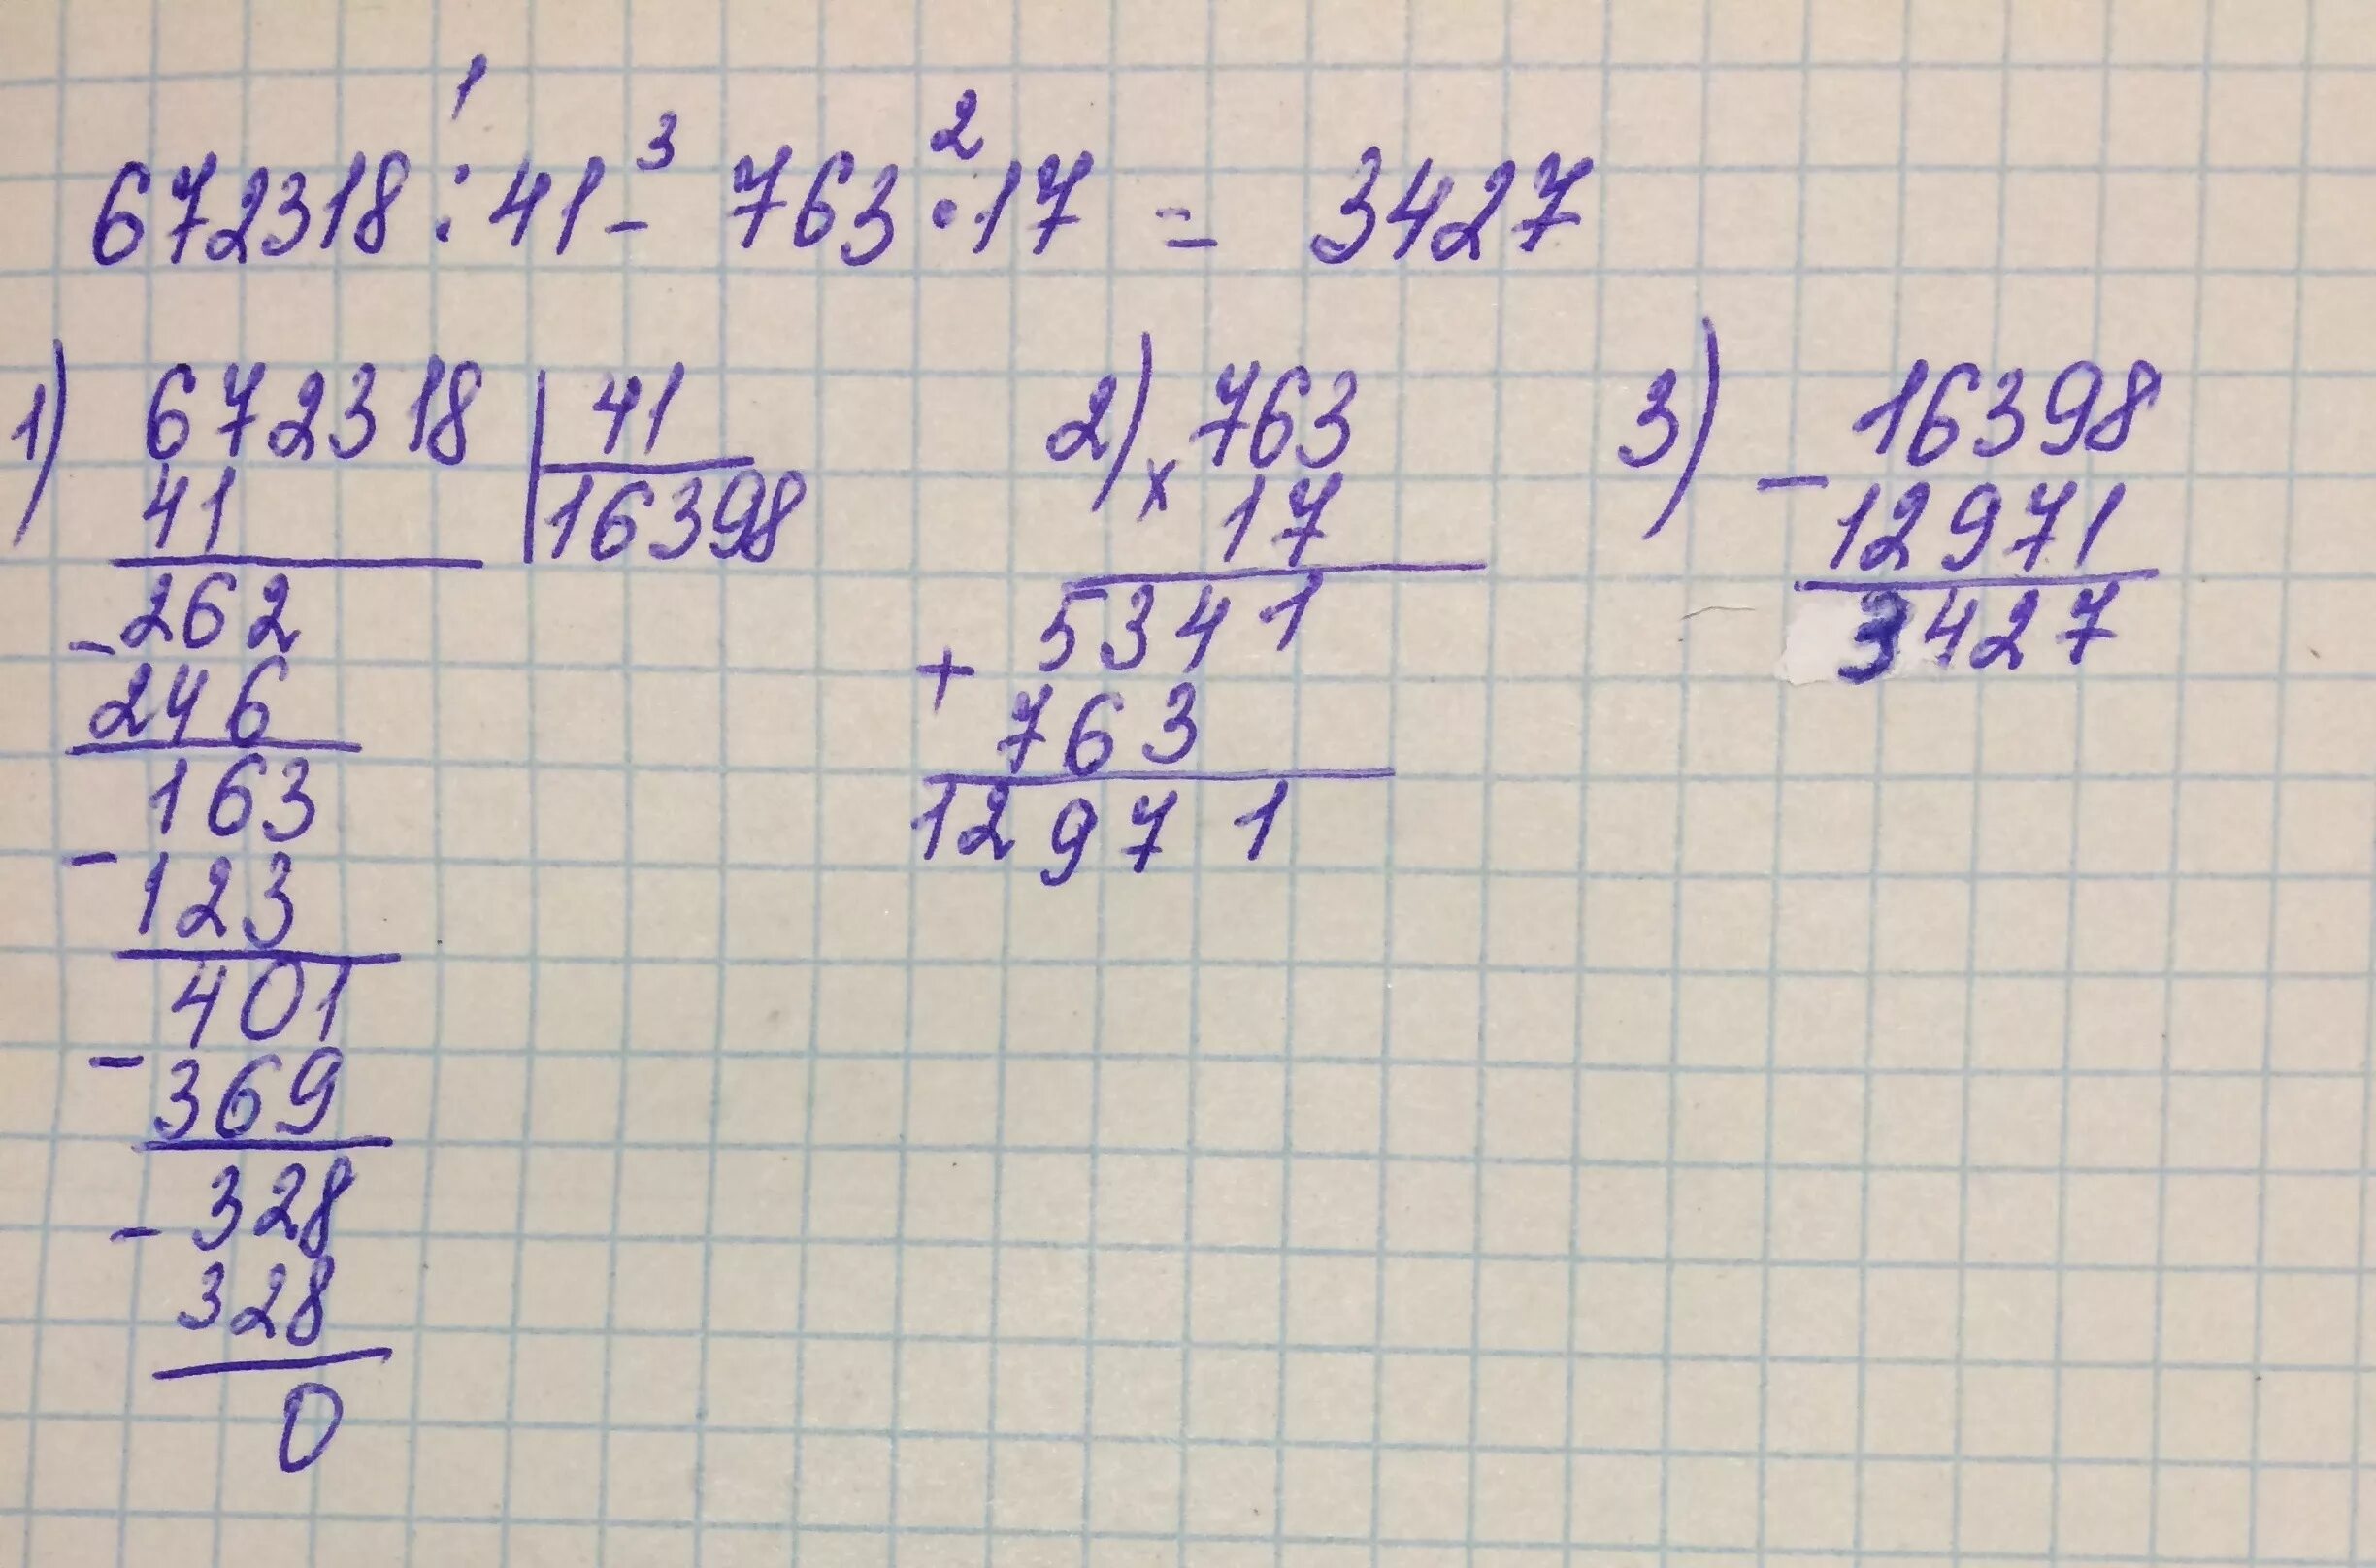 1 3 2
672318 : 41 - 763 · 17 = 3427
1) 672318 41
41 16398
- 262
246
163
- 123
401
- 369
- 328
328
0
2) 763
x 17
5341
+ 763
12971
3) 16398
- 12971
3427